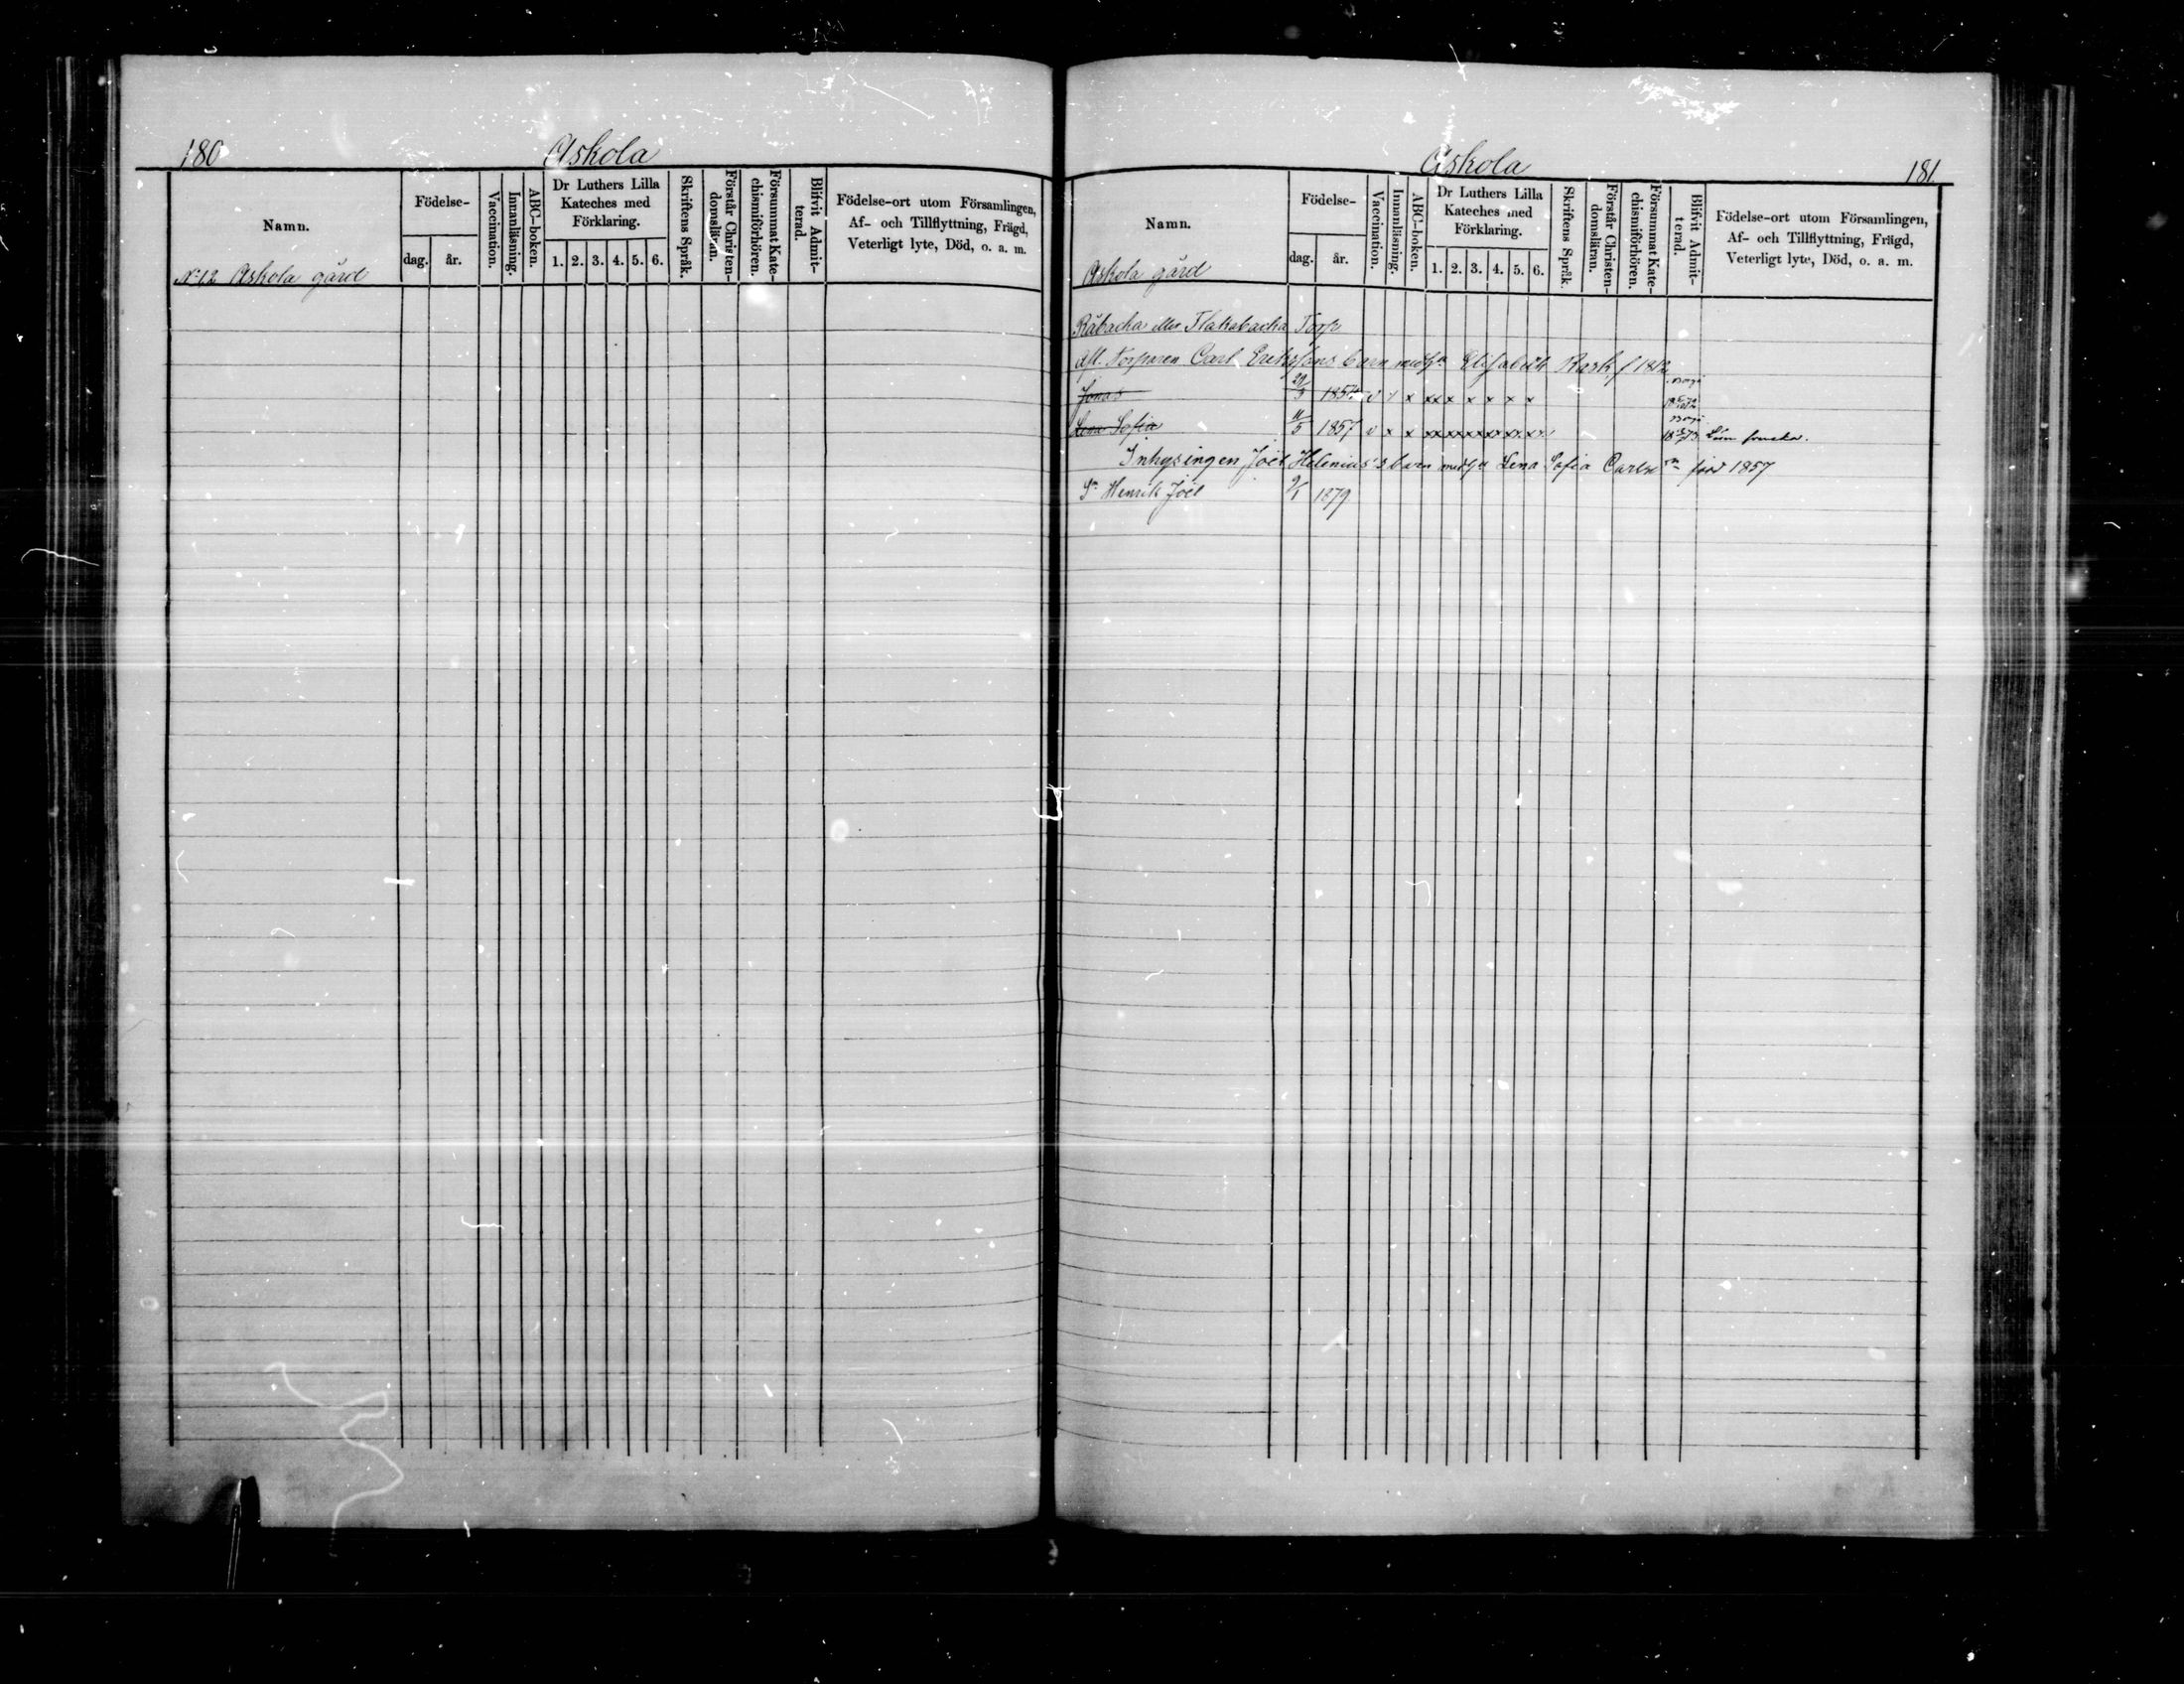 180
Askola
Namn.
Födelse-
dag. år.
Vaccination.
Innanläsning.
ABC-boken.
Dr Luthers Lilla
Kateches med
Förklaring.
1. 2. 3. 4. 5. 6.
Skriftens Språk.
Förstår Christen-
domsläran.
Försummat Kate-
chismiförhören.
Blifvit Admit-
terad.
Födelse-ort utom Församlingen,
Af- och Tillflyttning, Frägd,
Veterligt lyte, Död, o. a. m.
No 12 Askola gård
Askola
181
Namn.
Födelse-
dag. år.
Vaccination.
Innanläsning.
ABC-boken.
Dr Luthers Lilla
Kateches med
Förklaring.
1. 2. 3. 4. 5. 6.
Skriftens Språk.
Förstår Christen-
domsläran.
Försummat Kate-
chismiförhören.
Blifvit Admit-
terad.
Födelse-ort utom Församlingen,
Af- och Tillflyttning, Frägd,
Veterligt lyte, Död, o. a. m.
Askola gård
Råbacka eller Flakabacka Torp
Afl. Torparen Carl Erikssons barn med h. Elisabeth Rask f 1812
Jonas 29/3 1854 v x x xx x x x x x
Lena Sofia 11/5 1857 v x x xx xx xx xx xx xx
Inhysingen Joël Helenius's barn med h. Lena Sofia Carlsn född 1857
Sn Henrik Joël 9/1 1879